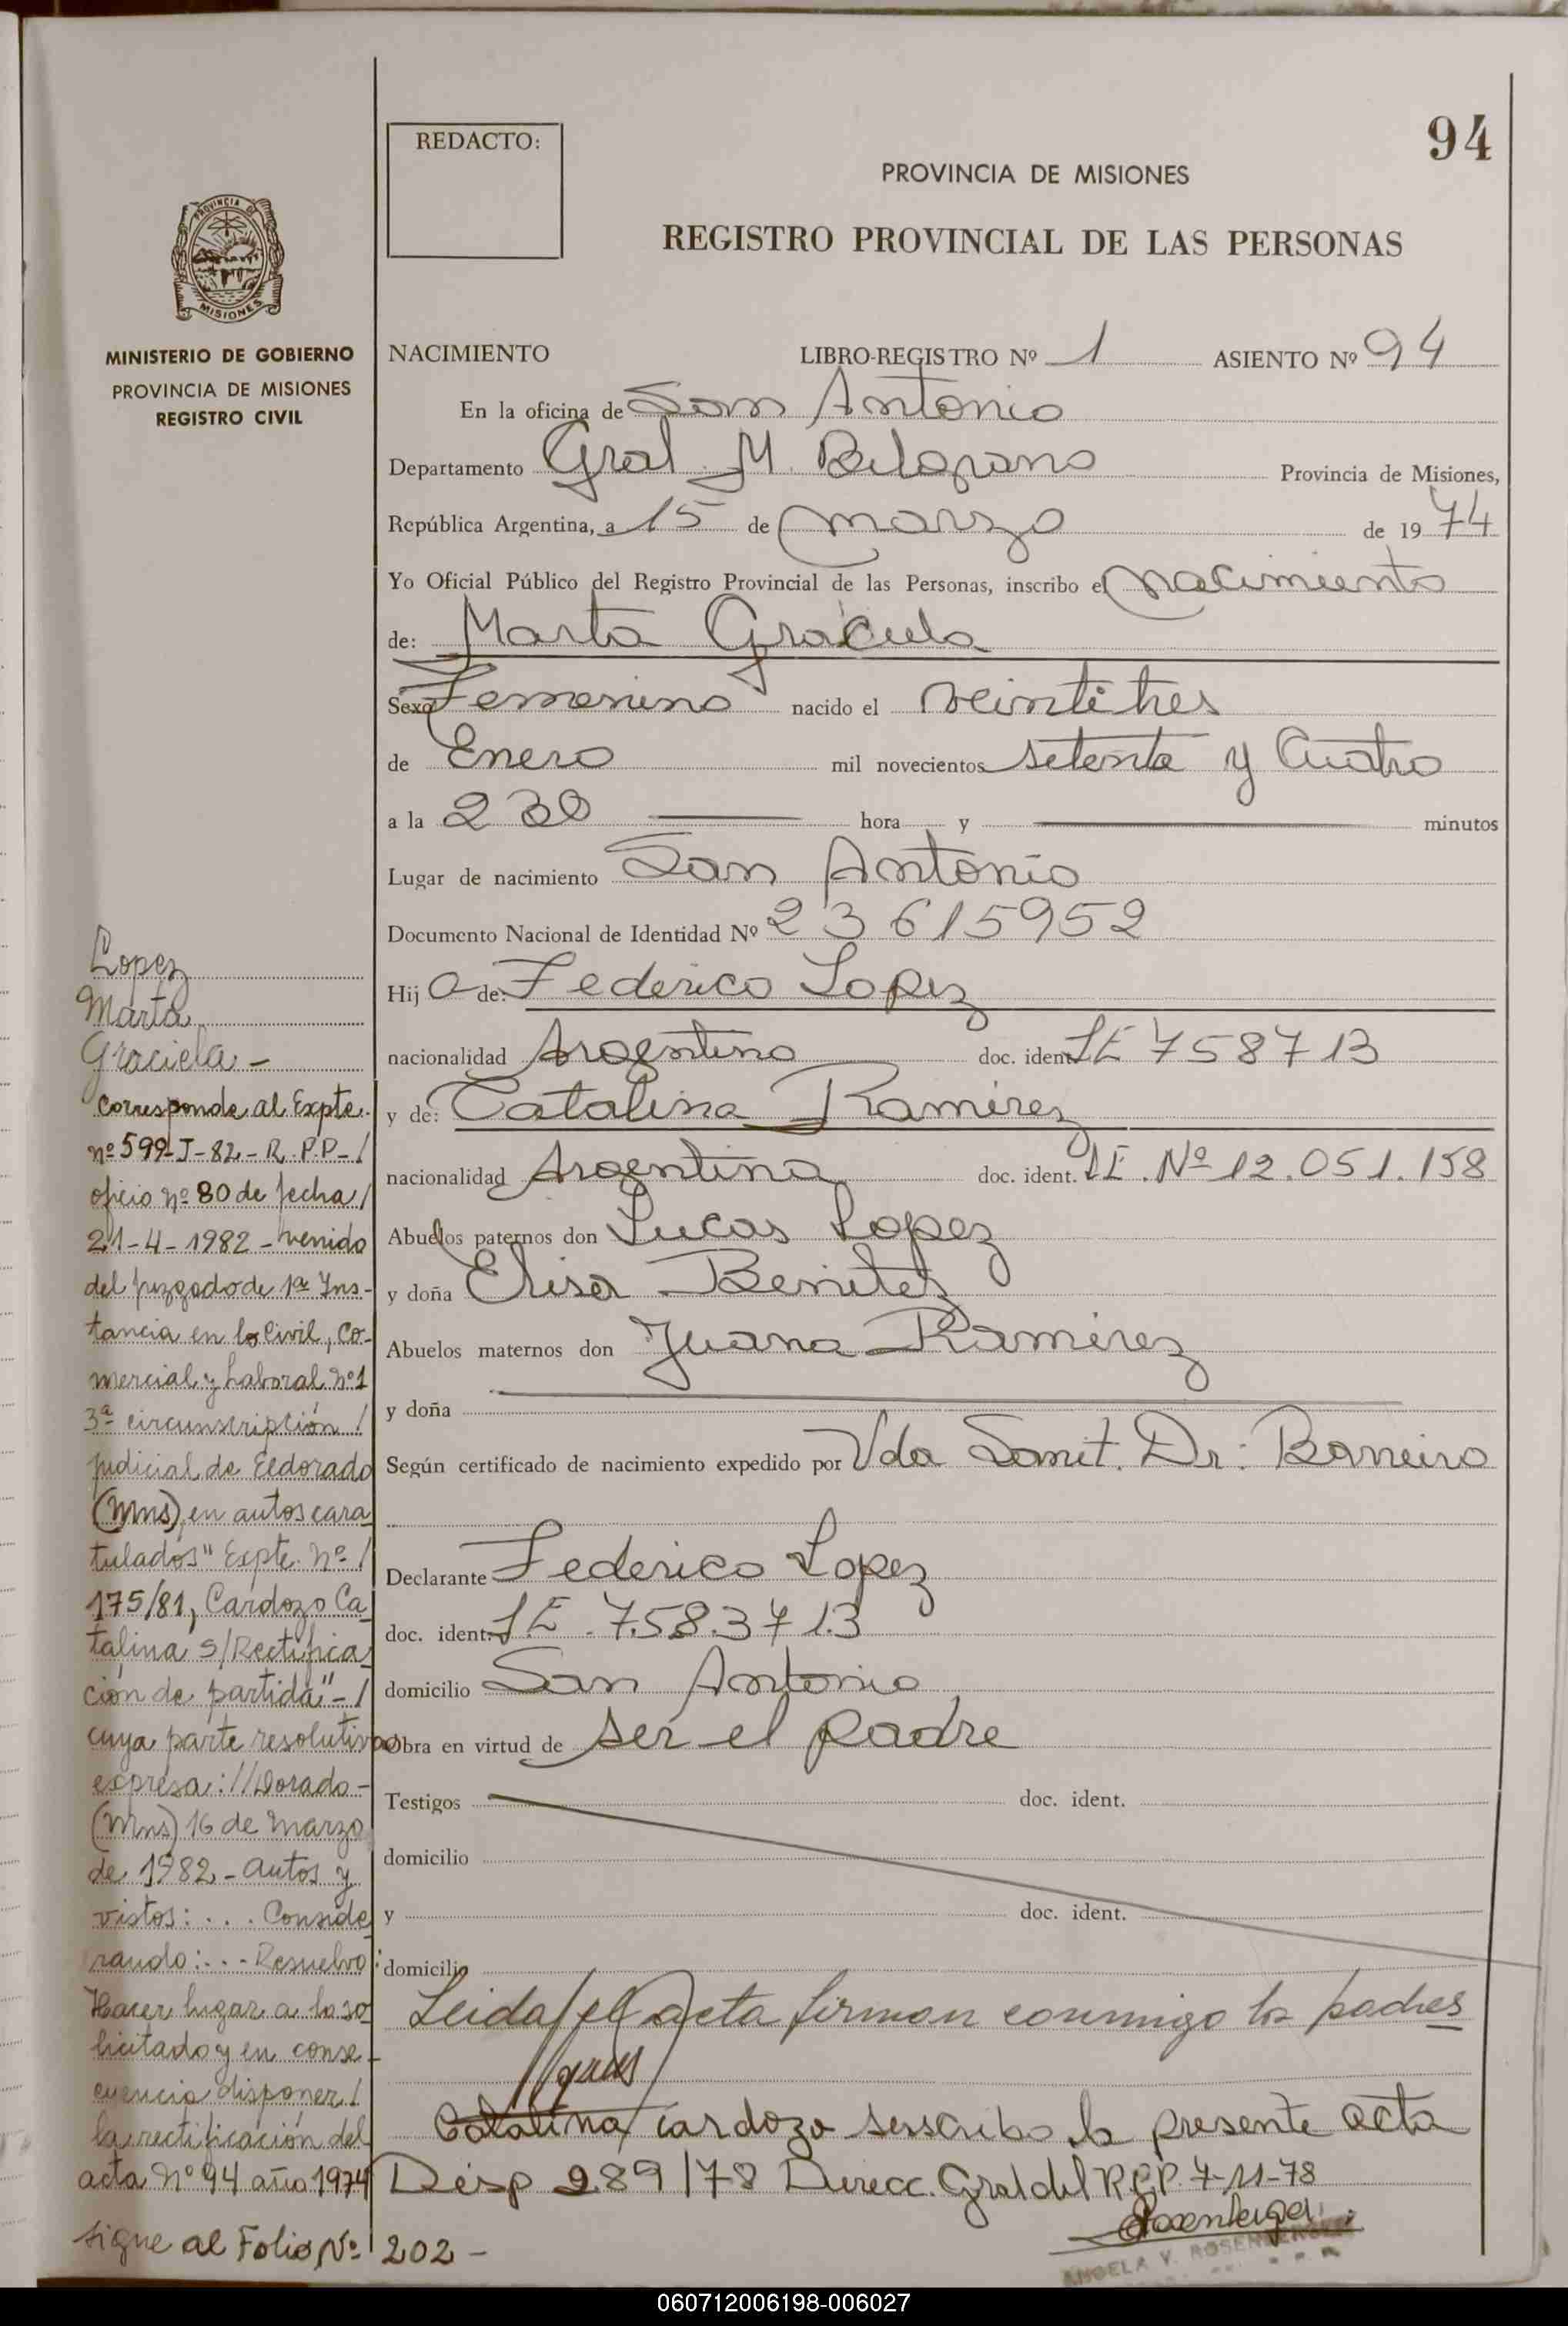 94
REDACTO:
PROVINCIA DE MISIONES
REGISTRO PROVINCIAL DE LAS PERSONAS
PROVINCIA DE
MISIONES
MINISTERIO DE GOBIERNO
PROVINCIA DE MISIONES
REGISTRO CIVIL
NACIMIENTO LIBRO-REGISTRO Nº 1 ASIENTO Nº 94
En la oficina de San Antonio
Departamento Gral. M. Belgrano Provincia de Misiones,
República Argentina, a 15 de marzo de 1974
Yo Oficial Público del Registro Provincial de las Personas, inscribo el nacimiento
de: Marta Graciela
Sexo Femenino nacido el veintitres
de Enero mil novecientos setenta y Cuatro
a la 230 hora y minutos
Lugar de nacimiento San Antonio
Documento Nacional de Identidad Nº 23615952
Hij a de: Federico Lopez
nacionalidad Argentino doc. ident. LE 758713
y de: Catalina Ramirez
nacionalidad Argentina doc. ident. LE. Nº 12.051.158
Abuelos paternos don Lucas Lopez
y doña Elisa Benitez
Abuelos maternos don Juana Ramirez
y doña
Según certificado de nacimiento expedido por Vda Sanit. Dr: Barreiro
Declarante Federico Lopez
doc. ident. LE. 7.583.713
domicilio San Antonio
Obra en virtud de ser el padre
Testigos doc. ident.
domicilio
y doc. ident.
domicilio
Leida el acta firman conmigo los padres
Catalina Cardozo suscribo la presente acta
Disp 289/78 Direcc. Gral del R.P.P. 7-11-78
ANGELA V.
Lopez
Marta
Graciela -
Corresponde al Expte.
nº 599-J-82- R.P.P-/
oficio nº 80 de fecha/
21-4-1982- venido
del juzgado de 1ª Ins-
tancia en lo Civil, Co-
mercial y Laboral nº1
3ª circunscripción/
judicial de Eldorado
(Mns), en autos cara
tulados" Expte. Nº /
175/81, Cardozo Ca
talina S/Rectifica
ción de partida"- /
cuya parte resolutiva
expresa: //Dorado-
(Mns) 16 de Marzo
de 1982- Autos y
vistos: ... Conside
rando: ... Resuelvo:
Hacer lugar a lo so
licitado y en conse-
cuencia disponer/
la rectificación del
acta Nº 94 año 1974
sigue al Folio Nº 202 -
060712006198-006027